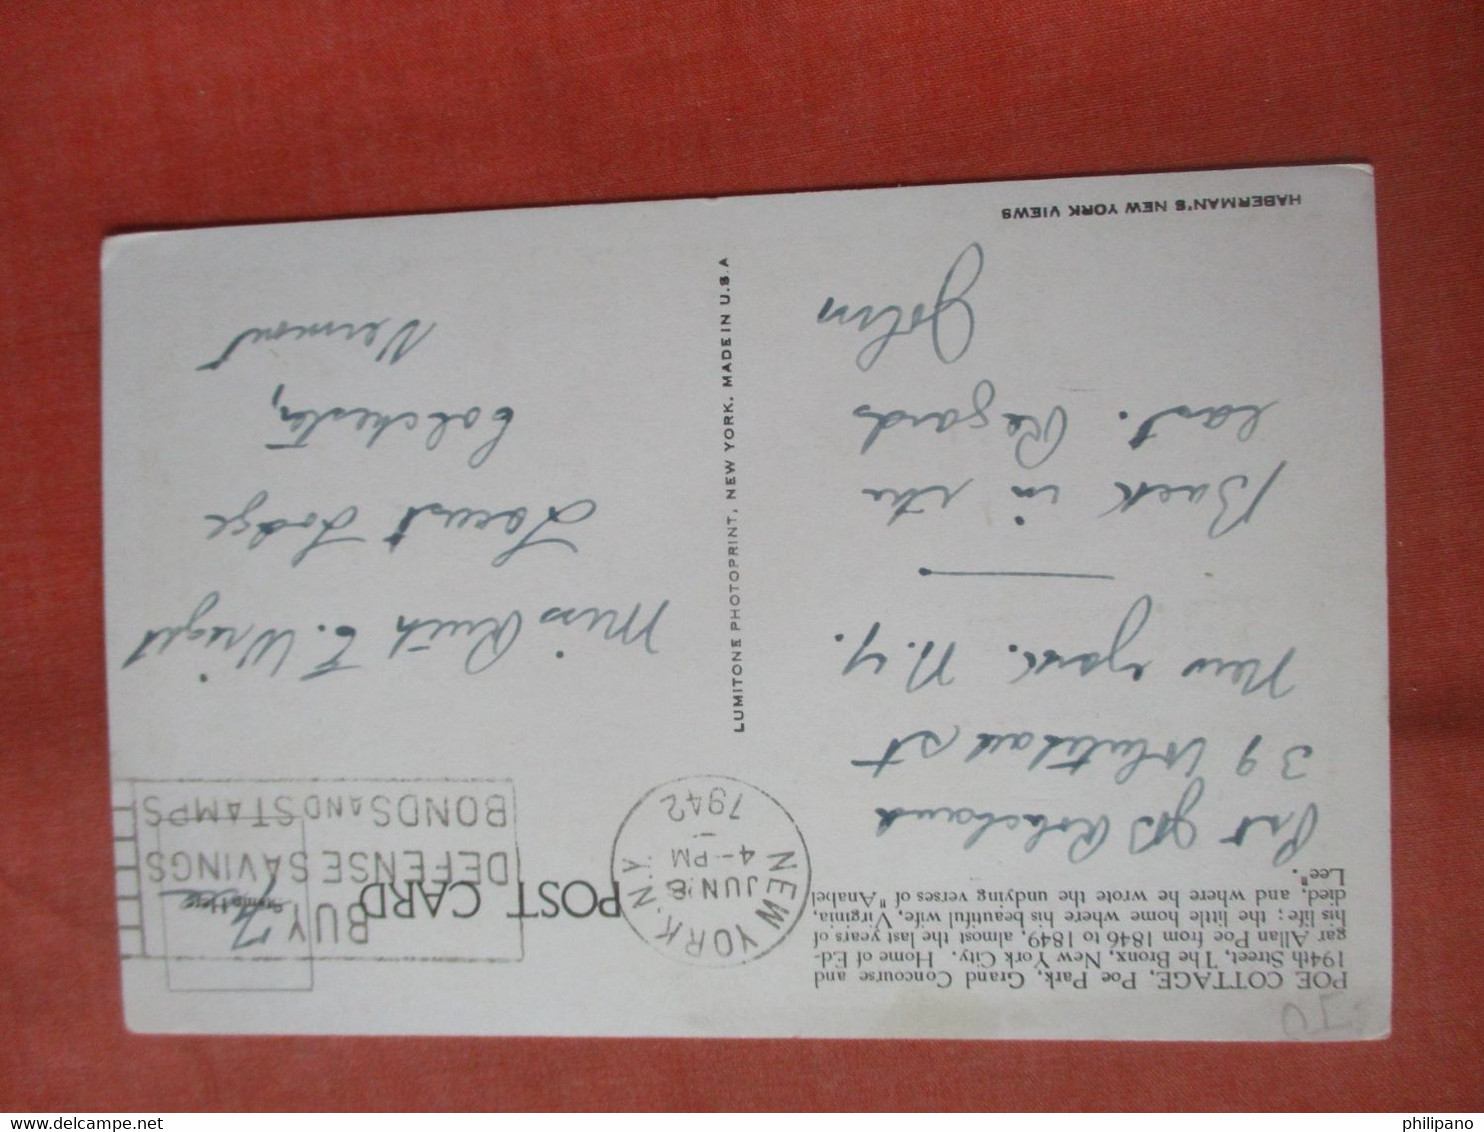 POE COTTAGE, Poe Park, Grand Concourse and
194th Street, The Bronx, New York City. Home of Ed-
gar Allan Poe from 1846 to 1849, almost the last years of
his life; the little home where his beautiful wife, Virginia,
died, and where he wrote the undying of verses of "Anabel
Lee".
39 Whitehall St
New York. N.Y.
Back in the
East. Regards
John
HABERMAN'S NEW YORK VIEWS
LUMITONE PHOTOPRINT, NEW YORK. MADE IN U.S.A
POST CARD
NEW YORK, N.Y.
JUN 8
4-PM
1942
BUY
DEFENSE SAVINGS
BONDS AND STAMPS
Free
Miss Ruth E. Wright
Locust Lodge
Colchester,
Vermont
philipano